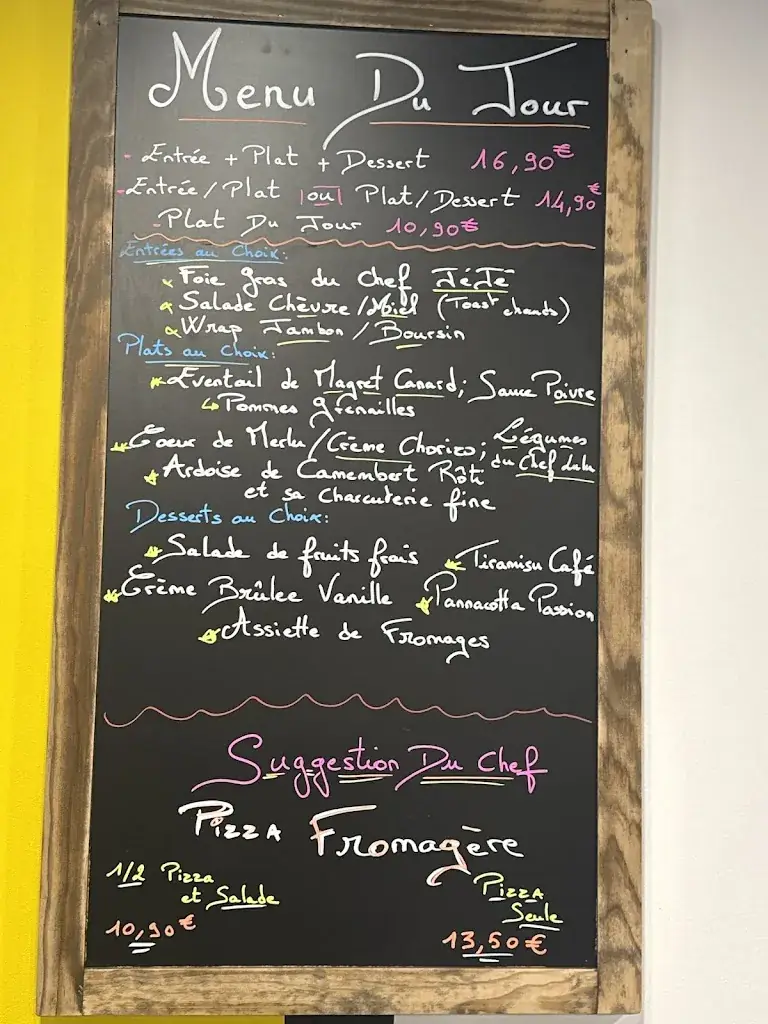 Menu Du Jour
- Entrée + Plat + Dessert 16,90€
- Entrée / Plat |ou| Plat / Dessert 14,90€
- Plat Du Jour 10,90€
Entrées au Choix:
Foie gras du Chef JéJé
Salade Chèvre / Miel (Toast chauds)
Wrap Jambon / Boursin
Plats au Choix:
Eventail de Magret Canard; Sauce Poivre
↳ Pommes grenailles
Coeur de Merlu / Crème Chorizo; Légumes
du Chef Lulu
Ardoise de Camembert Rôti
et sa Charcuterie fine
Desserts au Choix:
Salade de fruits frais
Tiramisu Café
Crème Brûlee Vanille
Pannacotta Passion
Assiette de Fromages
Suggestion Du Chef
Pizza Fromagère
1/2 Pizza
et Salade
10,90€
Pizza
Seule
13,50€